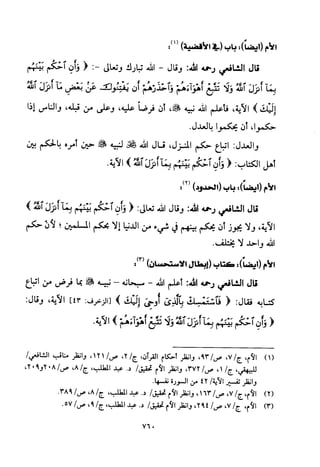 الأم (أيضاً)، باب (في الأقضية) (١):
قال الشافعي رحمه الله: وقال - الله تبارك وتعالى -: ﴿ وَأَنِ احْكُم بَيْنَهُم
بِمَا أَنزَلَ اللَّهُ وَلَا تَتَّبِعْ أَهْوَاءَهُمْ وَاحْذَرْهُمْ أَن يَفْتِنُوكَ عَن بَعْضِ مَا أَنزَلَ اللَّهُ
إِلَيْكَ ﴾ الآية، فأعلم الله نبيه ﷺ أن فرضاً عليه، وعلى من قبله، والناس إذا
حكموا، أن يحكموا بالعدل.
والعدل: اتباع حكم المنزل، قال الله لنبيه ﷺ حين أمره بالحكم بين
أهل الكتاب: ﴿ وَأَنِ احْكُم بَيْنَهُم بِمَا أَنزَلَ اللَّهُ ﴾ الآية.
الأم (أيضاً)، باب (الحدود) (٢):
قال الشافعي رحمه الله: وقال الله تعالى: ﴿ وَأَنِ احْكُم بَيْنَهُم بِمَا أَنزَلَ اللَّهُ ﴾
الآية، ولا يجوز أن يحكم بينهم في شيء من الدنيا إلا بحكم المسلمين؛ لأن حكم
الله واحد لا يختلف.
الأم (أيضاً)، كتاب (إبطال الاستحسان) (٣):
قال الشافعي رحمه الله: أعلم الله - سبحانه - نبيه ﷺ بما فرض من اتباع
كتابه، فقال: ﴿ فَاسْتَمْسِكْ بِالَّذِي أُوحِيَ إِلَيْكَ ﴾ [الزخرف: ٤٣] الآية، وقال:
﴿ وَأَنِ احْكُم بَيْنَهُم بِمَا أَنزَلَ اللَّهُ وَلَا تَتَّبِعْ أَهْوَاءَهُمْ ﴾ الآية.
(١) الأم، ج/٧، ص/٩٣، وانظر أحكام القرآن، ج/٢، ص/١٢١، وانظر مناقب الشافعي/
للبيهقي، ج/١، ص/٣٧٢، وانظر الأم تحقيق/ د. عبد المطلب، ج/٨، ص/٢٠٨و٢٠٩،
وانظر تفسير الآية/٤٢ من السورة نفسها.
(٢) الأم، ج/٧، ص/١٦٣، وانظر الأم تحقيق/ د. عبد المطلب، ج/٨، ص/٣٨٩.
(٣) الأم، ج/٧، ص/٢٩٤، وانظر الأم تحقيق/ د. عبد المطلب، ج/٩، ص/٥٧.
٧٦٠